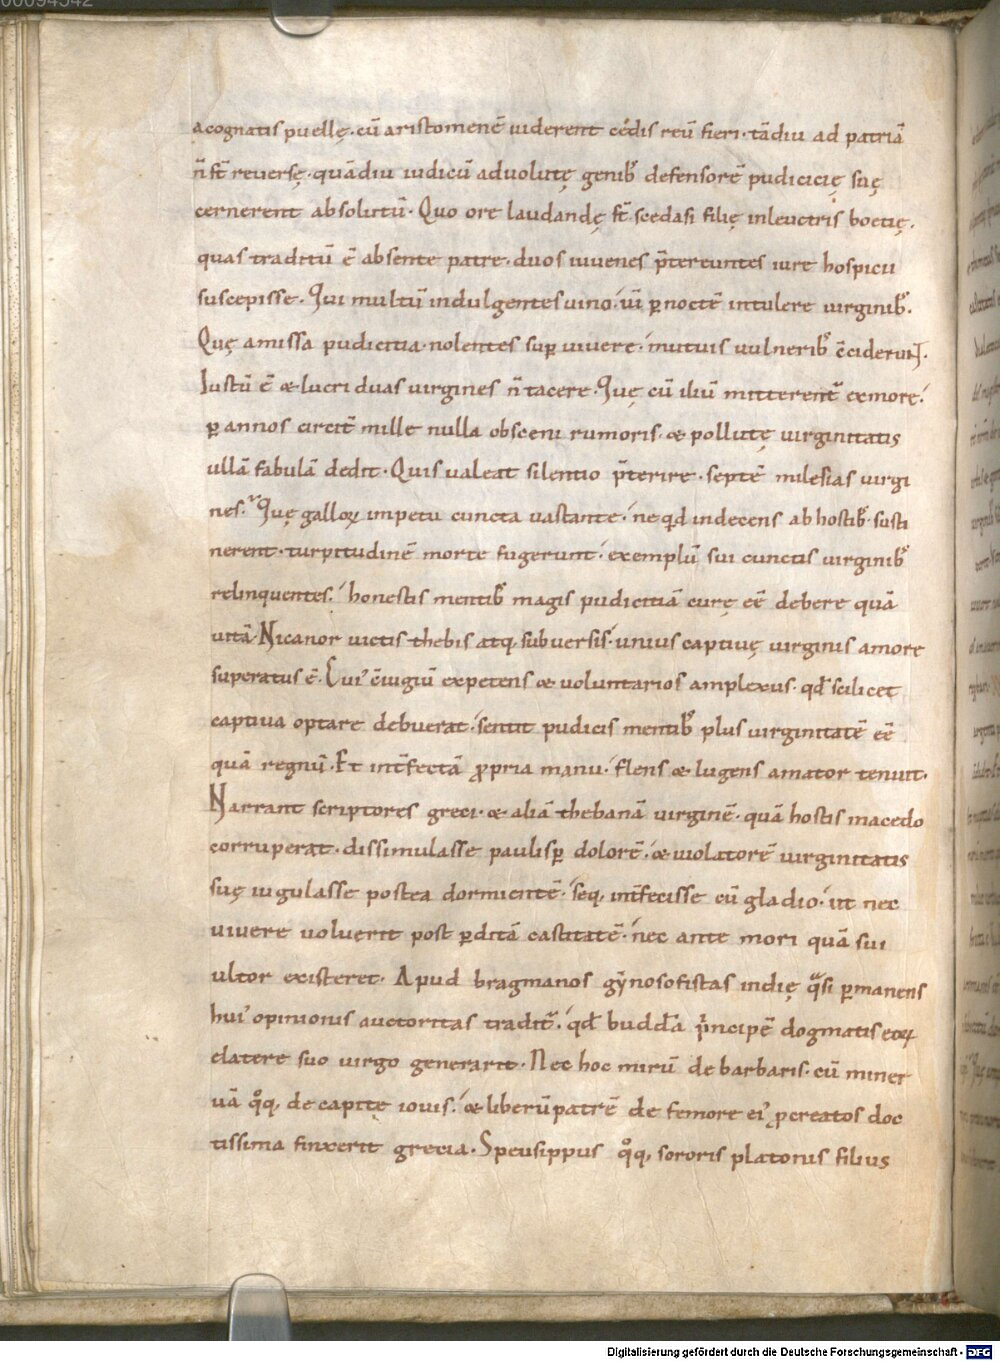 00094542
acognatis puellę. cū aristomenē uiderent cędis reū fieri. tādiu ad patriā
n̄ st̄ reuersę. quādiu iudicū aduolutę genib; defensorē pudicicię suę
cernerent absolutū. Quo ore laudandę st̄ scedasi filię inleuctris boetię.
quas traditū ē absente patre. duos iuuenes p̄tereuntes iure hospicii
suscepisse. Qui multū indulgentes uino. uī p̱ noctē intulere uirginib;.
Quę amissa pudicitia. nolentes sup̱ uiuere. mutuis uulnerib; c̄ciderunt.
Iustū ē & lucri duas uirgines n̄ tacere. Quę cū iliū mitterent̄ exmore.
p̱ annos circit̄ mille nulla obsceni rumoris. & pollutę uirginitatis
ullā fabulā dedit. Quis ualeat silentio p̄terire. septē milesias uirgi
nes. Quę galloꝝ impetu cuncta uastante. ne qd indecens ab hostib; susti
nerent. turpitudinē morte fugerunt. exemplū sui cunctis uirginib;
relinquentes. honestis mentib; magis pudicitiā curę eē debere quā
uitā. Nicanor uictis thebis atq; subuersis. unius captiuę uirginis amore
superatus ē. Cui' c̄iugiū expetens & uoluntarios amplexus. qd̄ scilicet
captiua optare debuerat. sentit pudicis mentib; plus uirginitatē eē
quā regnū. Et int̄fectā ꝓpria manu. flens & lugens amator tenuit.
Narrant scriptores greci. & aliā thebanā uirginē. quā hostis macedo
corruperat. dissimulasse paulisp̱ dolorē. & uiolatorē uirginitatis
suę iugulasse postea dormientē. seq; int̄fecisse cū gladio. ut nec
uiuere uoluerit post p̱ditā castitatē. nec ante mori quā sui
ultor existeret. Apud bragmanos gẏnosofistas indię qͣsi p̱manens
hui' opinionis auctoritas tradit̄. qd̄ budda p̄ncipē dogmatis eoꝝ
elatere suo uirgo generarit. Nec hoc mirū de barbaris. cū miner
uā qͦq; de capite iouis. & liberū patrē de femore ei' ꝓcreatos doc
tissima finxerit grecia. Speusippus qͦq; sororis platonis filius
Digitalisierung gefördert durch die Deutsche Forschungsgemeinschaft - DFG